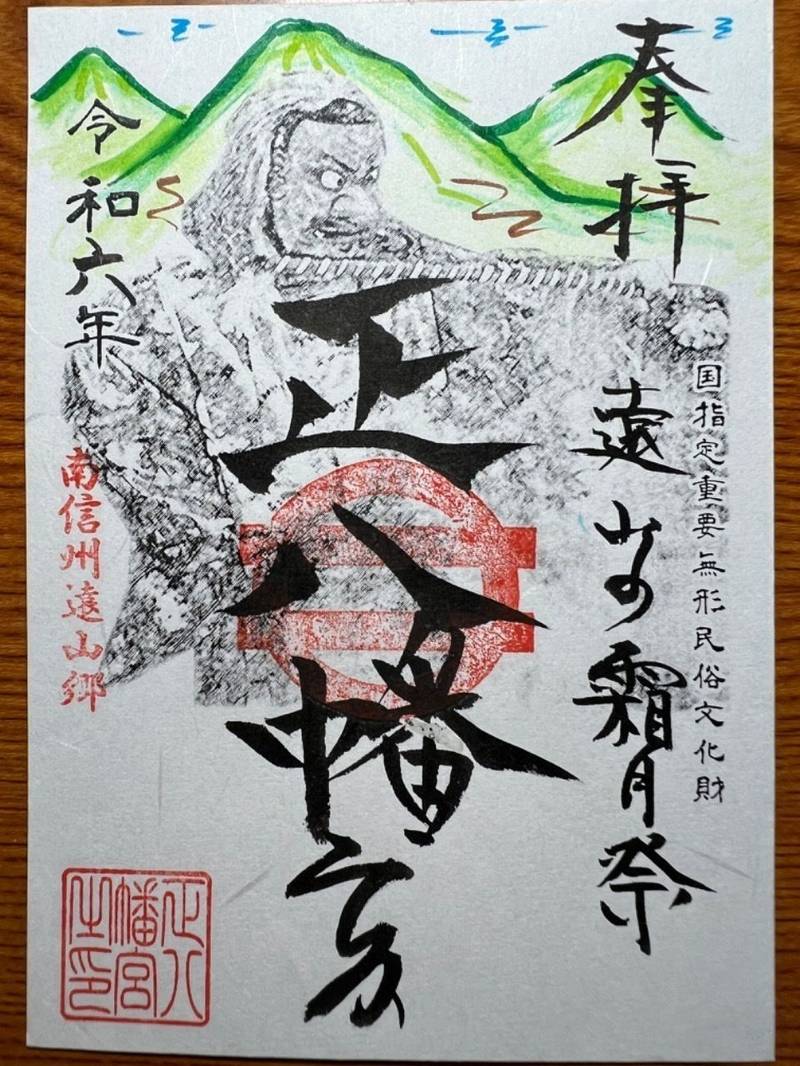 奉拝
国指定重要無形民俗文化財
遠山の霜月祭
正八幡宮
令和六年
南信州遠山郷
正八
幡宮
之印